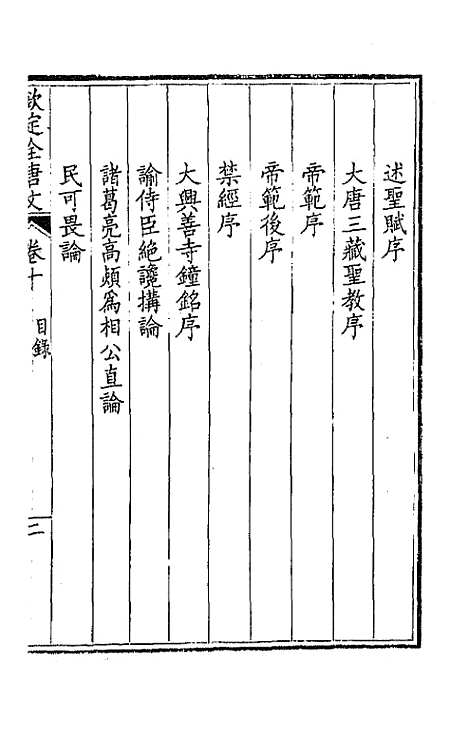 述聖賦序
大唐三藏聖教序
帝範序
帝範後序
禁經序
大興善寺鐘銘序
諭侍臣絕讒搆論
諸葛亮高熲為相公直論
民可畏論
欽定全唐文
卷十
目錄
二